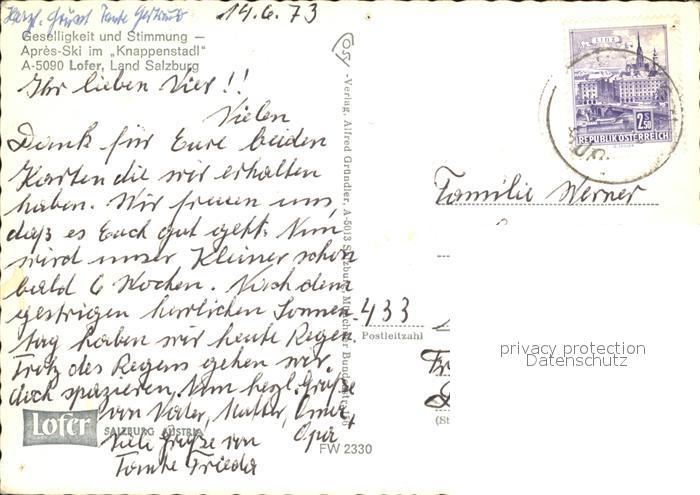 Herzl. Grüsst Tante Gertraud 14.6.73
Geselligkeit und Stimmung –
Après-Ski im „Knappenstadl"
A-5090 Lofer, Land Salzburg
Ihr lieben Vier!!
Vielen
Dank für Eure beiden
Karten die wir erhalten
haben. Wir freuen uns,
daß es Euch gut geht. Nun
wird unser Kleiner schon
bald 6 Wochen. Nach dem
gestrigen herrlichen Sonnen-
tag haben wir heute Regen.
Trotz des Regens gehen wir
doch spazieren. Nun hezl. Grüße
von Vater, Mutter, Oma +
Opa
Viele Grüße von
Tante Frieda
Lofer SALZBURG AUSTRIA
FW 2330
-Verlag, Alfred Gründler, A-5013 Salzburg, Münchner Bundesstraße
LINZ
2.50
REPUBLIK ÖSTERREICH
Familie Werner
433
Postleitzahl
(St
privacy protection
Datenschutz